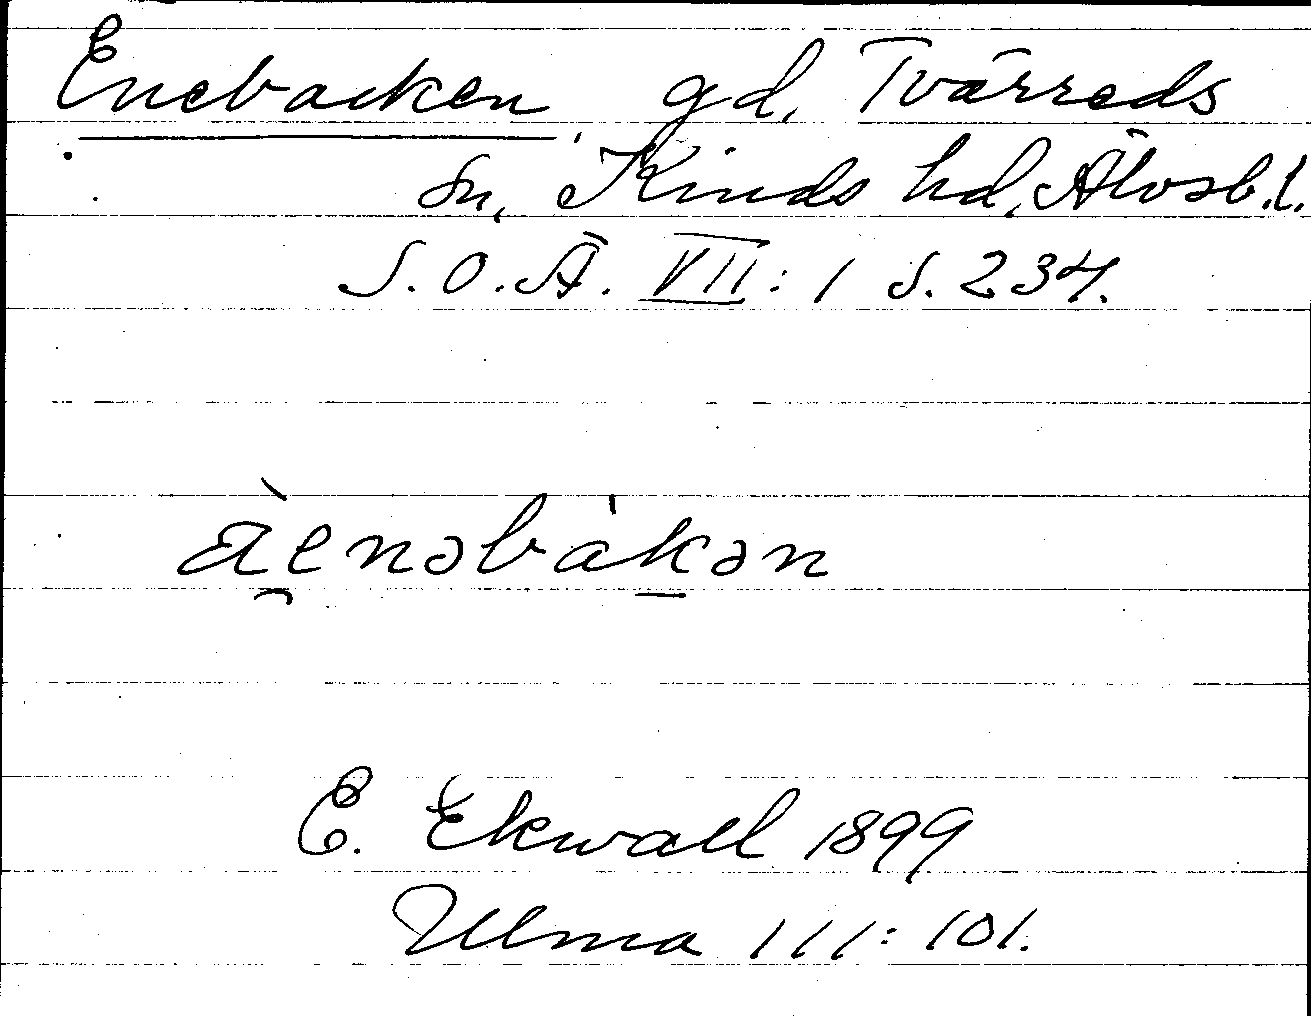 Enebacken, gd, Tvärreds
sn, Kinds hd, Älvsb.l.
S.O.Ä. VII: 1 S. 234.
à̯enəbàk̠ən
E. Ekwall 1899
Ulma 111: 101.